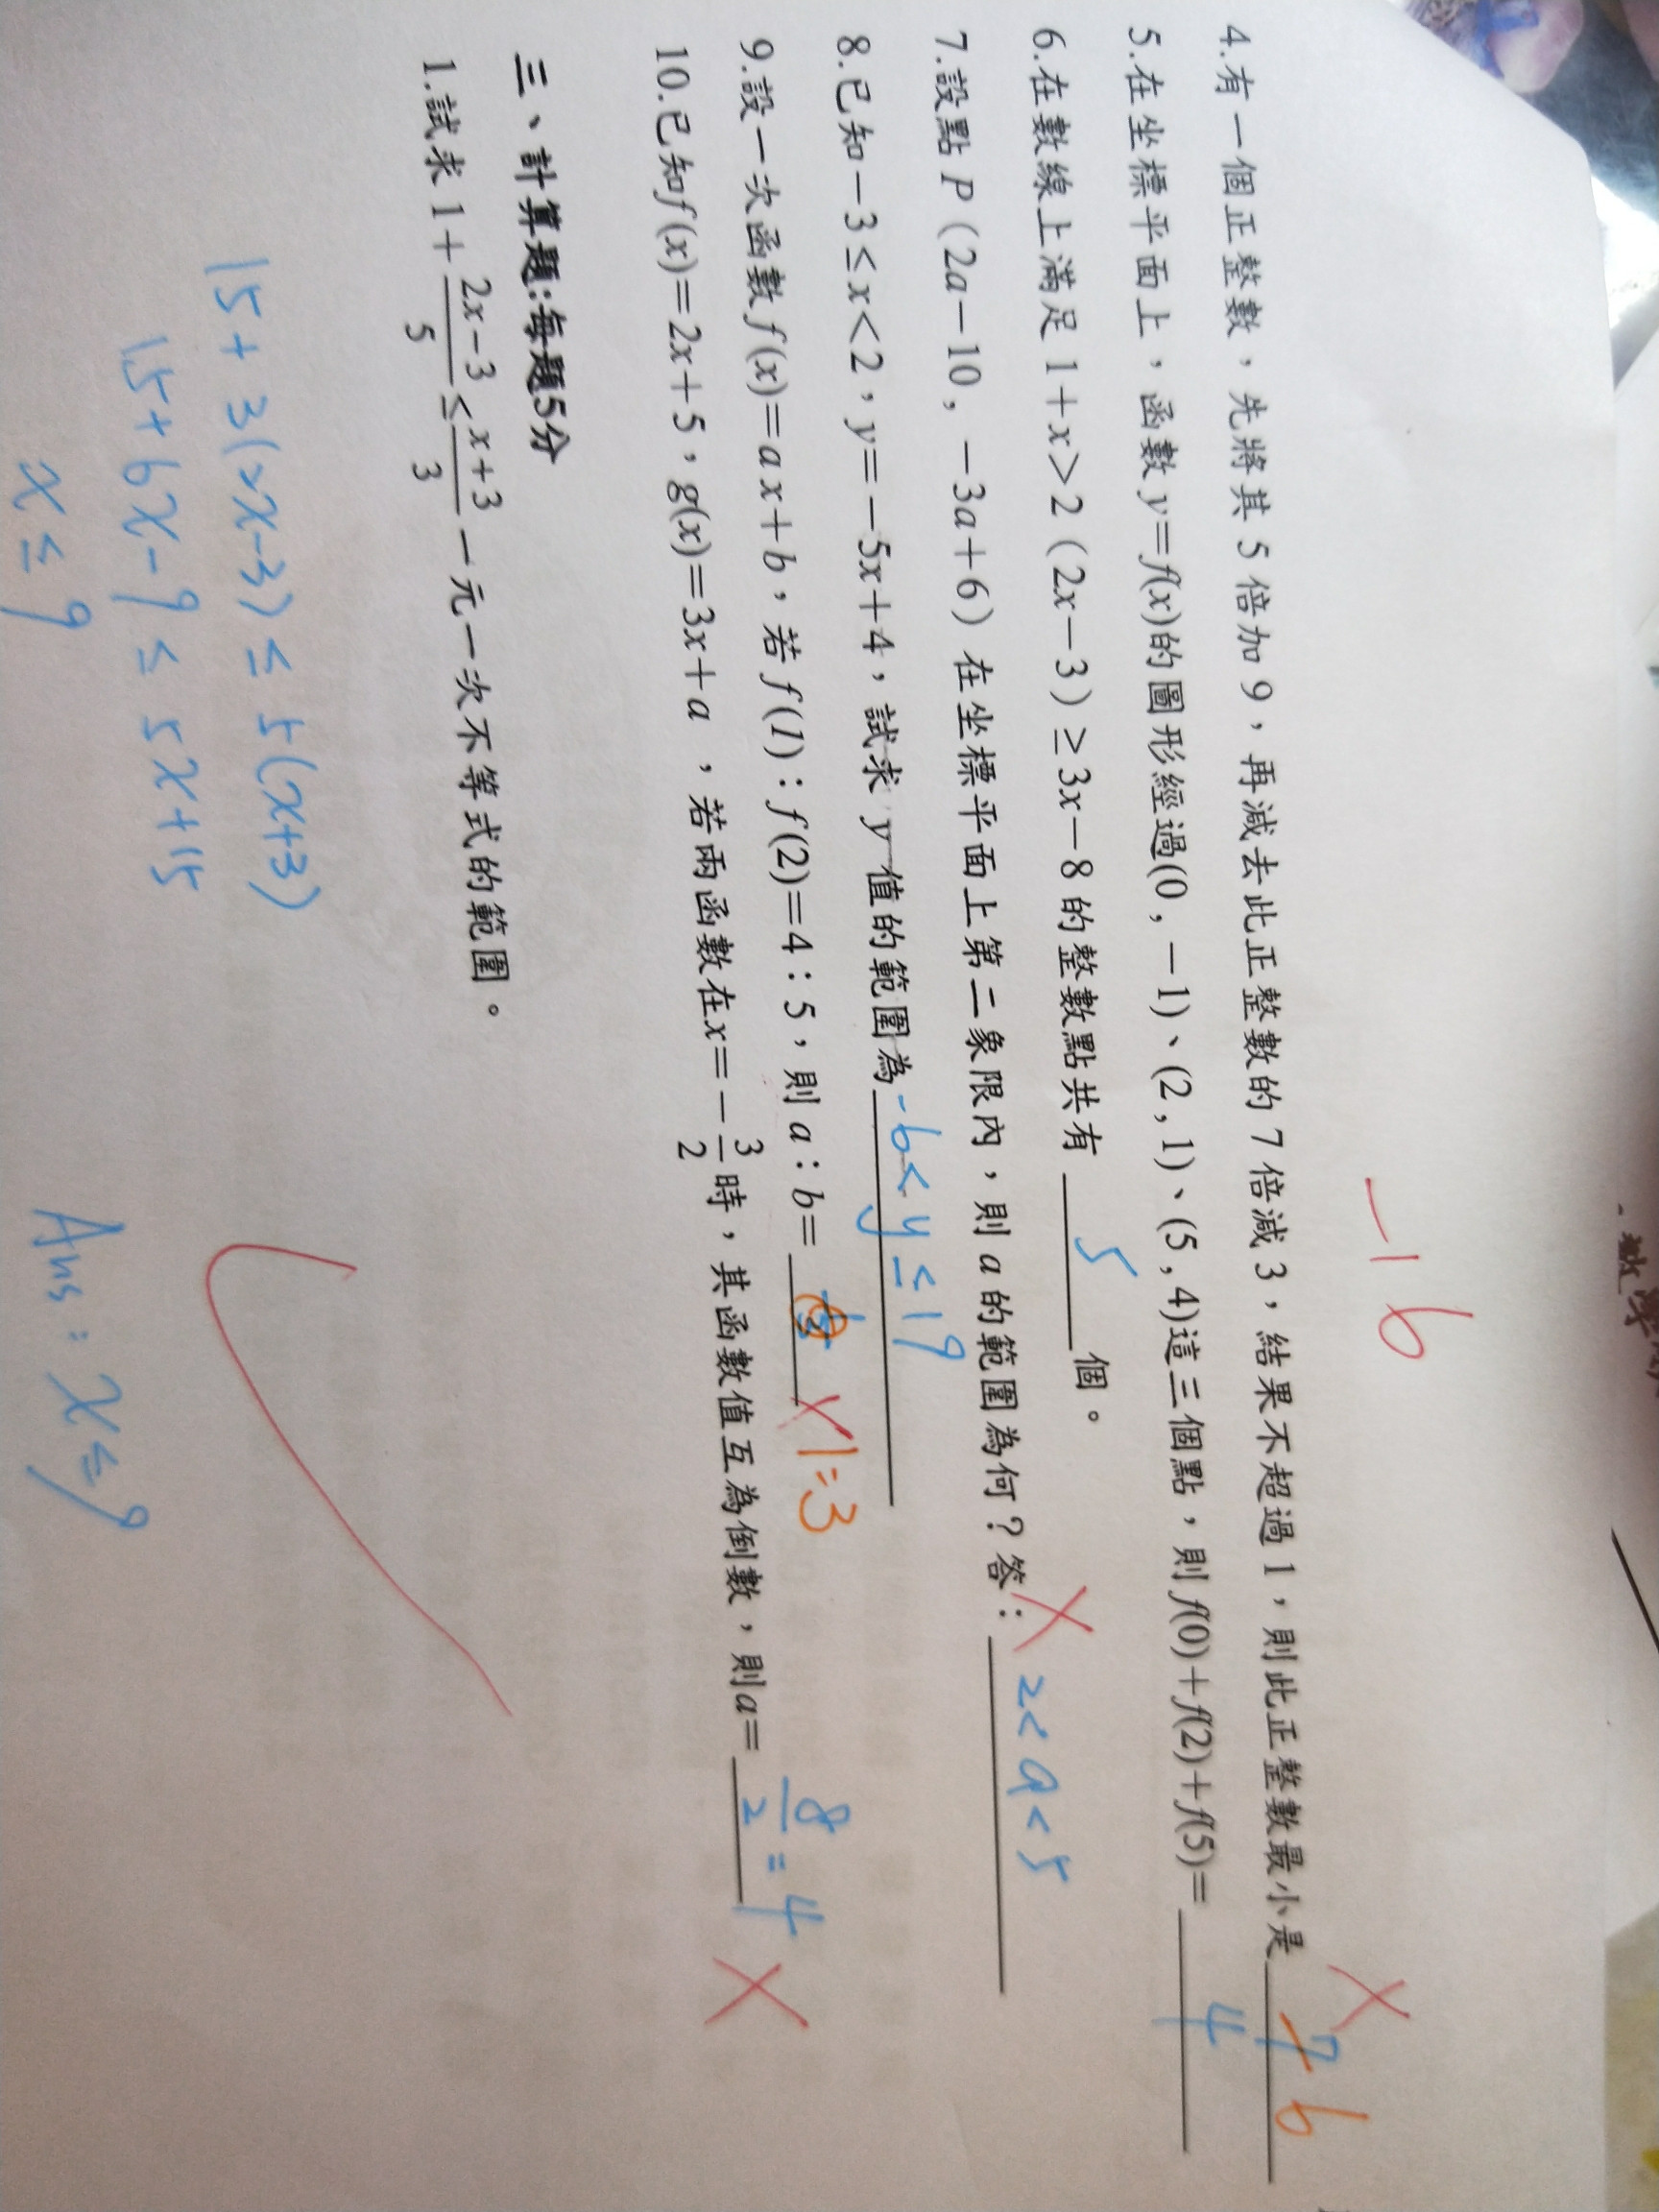 -16
4.有一個正整數，先將其5倍加9，再減去此正整數的7倍減3，結果不超過1，則此正整數最小是 7 6
5.在坐標平面上，函數y=f(x)的圖形經過(0,-1)、(2,1)、(5,4)這三個點，則f(0)+f(2)+f(5)= 4
6.在數線上滿足1+x>2(2x-3)≥3x-8的整數點共有 5 個。
7.設點P(2a-10,-3a+6)在坐標平面上第二象限內，則a的範圍為何？答： 2<a<5
8.已知-3≤x<2，y=-5x+4，試求y值的範圍為 -6<y≤19
9.設一次函數f(x)=ax+b，若f(1):f(2)=4:5，則a:b= 1:3
10.已知f(x)=2x+5，g(x)=3x+a，若兩函數在x=-3/2時，其函數值互為倒數，則a= 8/2=4
三、計算題:每題5分
1.試求1+(2x-3)/5≤(x+3)/3一元一次不等式的範圍。
15+3(2x-3)≤5(x+3)
15+6x-9≤5x+15
x≤9
Ans:x≤9